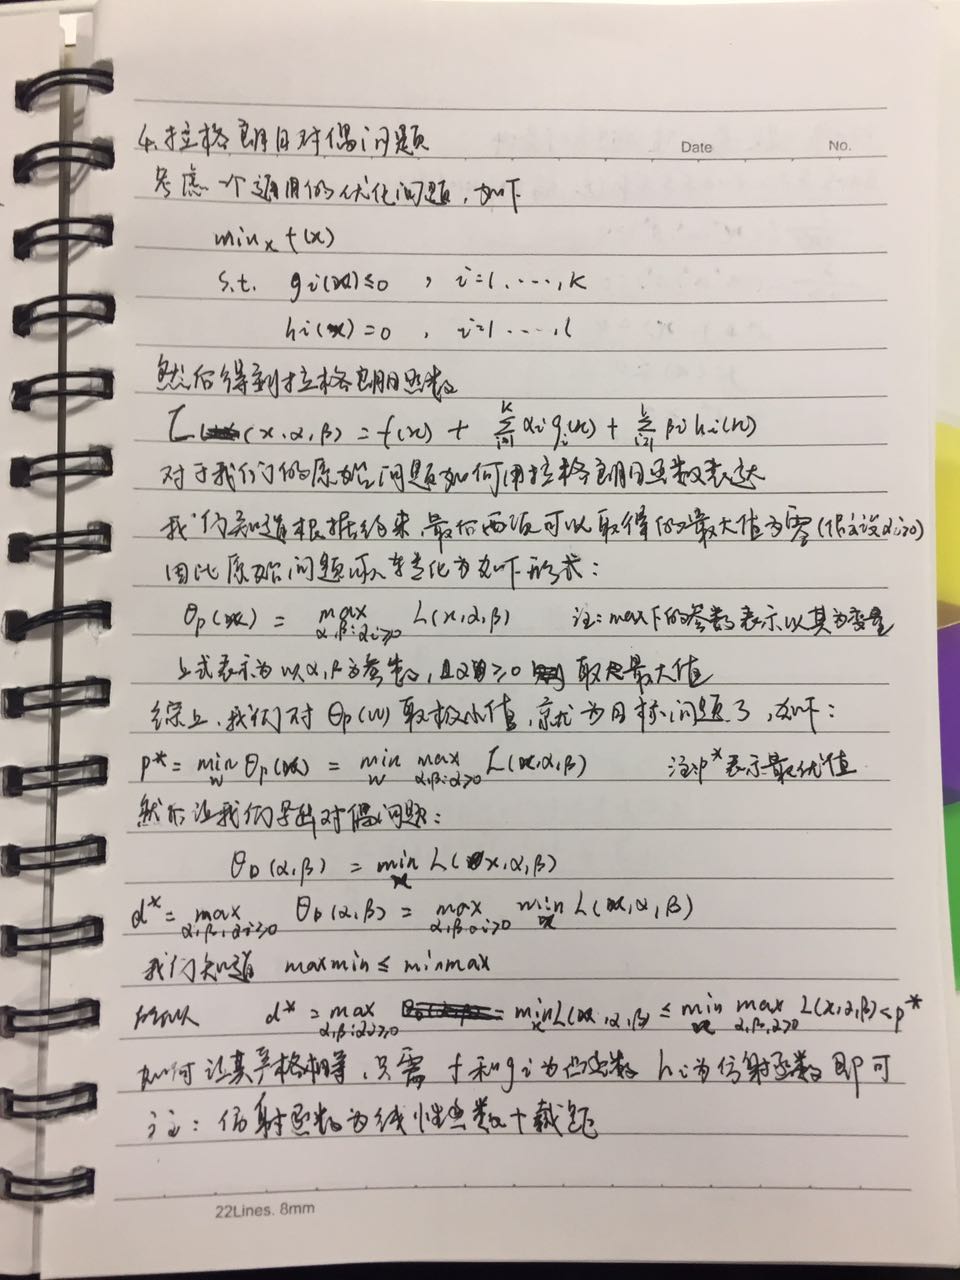 4. 拉格朗日对偶问题
Date No.
考虑一个通用的优化问题，如下
min_x f(x)
s.t. g_i(x)≤0 , i=1.....,k
h_i(x)=0 , i=1.....,l
然后得到拉格朗日函数
L(x,α,β) = f(x) + Σ_{i=1}^{k} α_i g_i(x) + Σ_{i=1}^{l} β_i h_i(x)
对于我们的原始问题如何用拉格朗日函数表达
我们知道根据约束,最后两项可以取得的最大值为零(假设α_i≥0)
因此原始问题可以转化为如下形式：
θ_p(x) = max_{α,β:α_i≥0} L(x,α,β) 注：max下的参数表示以其为变量
上式表示为以α,β为参数,且α≥0 取最大值
综上,我们对θ_p(w)取极小值,就为目标问题了,如下：
p* = min_w θ_p(x) = min_w max_{α,β:α≥0} L(x,α,β) 注：p*表示最优值
然后让我们导出对偶问题：
θ_D(α,β) = min_x L(x,α,β)
d* = max_{α,β,α_i≥0} θ_D(α,β) = max_{α,β,α_i≥0} min_x L(x,α,β)
我们知道 maxmin ≤ minmax
所以 d* = max_{α,β:α_i≥0} = min_x L(x,α,β) ≤ min_x max_{α,β,α≥0} L(x,α,β) < p*
如何让其严格相等,只需 f和g_i为凸函数 h_i为仿射函数即可
注：仿射函数为线性函数+截距
22Lines. 8mm